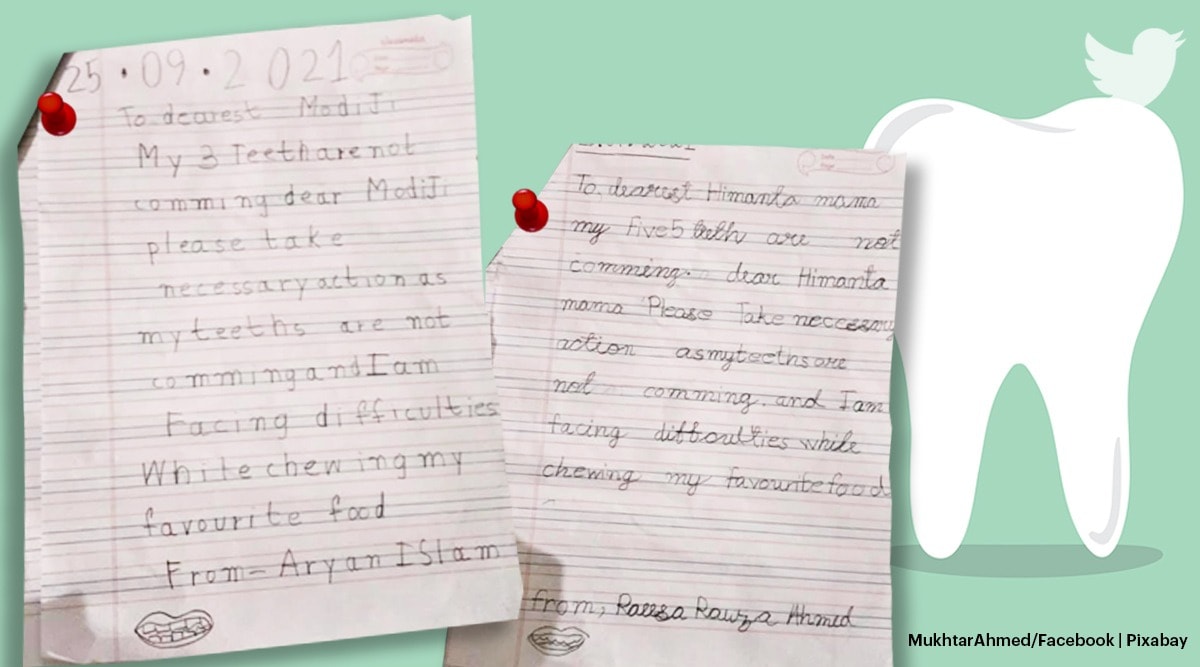 25.09.2021
To dearest ModiJi
My 3 Teeth are not
comming dear ModiJi
please take
necessary action as
my teeths are not
comming and I am
Facing difficulties
While chewing my
favourite food
From- Aryan ISlam
To, dearest Himanta mama
my five5 teeth are not
comming. dear Himanta
mama Please Take neccessary
action asmyteethsare
not comming. and I am
facing difficulties while
chewing my favourite food
from, Raeesa Rawza Ahmed
MukhtarAhmed/Facebook | Pixabay